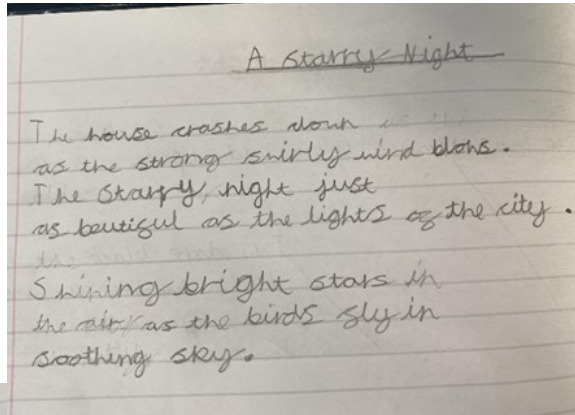 A Starry Night
The house crashes down
as the strong swirly wind blows.
The Starry night just
as beutiful as the lights of the city.
Shining bright stars in
the air, as the birds fly in
soothing sky.